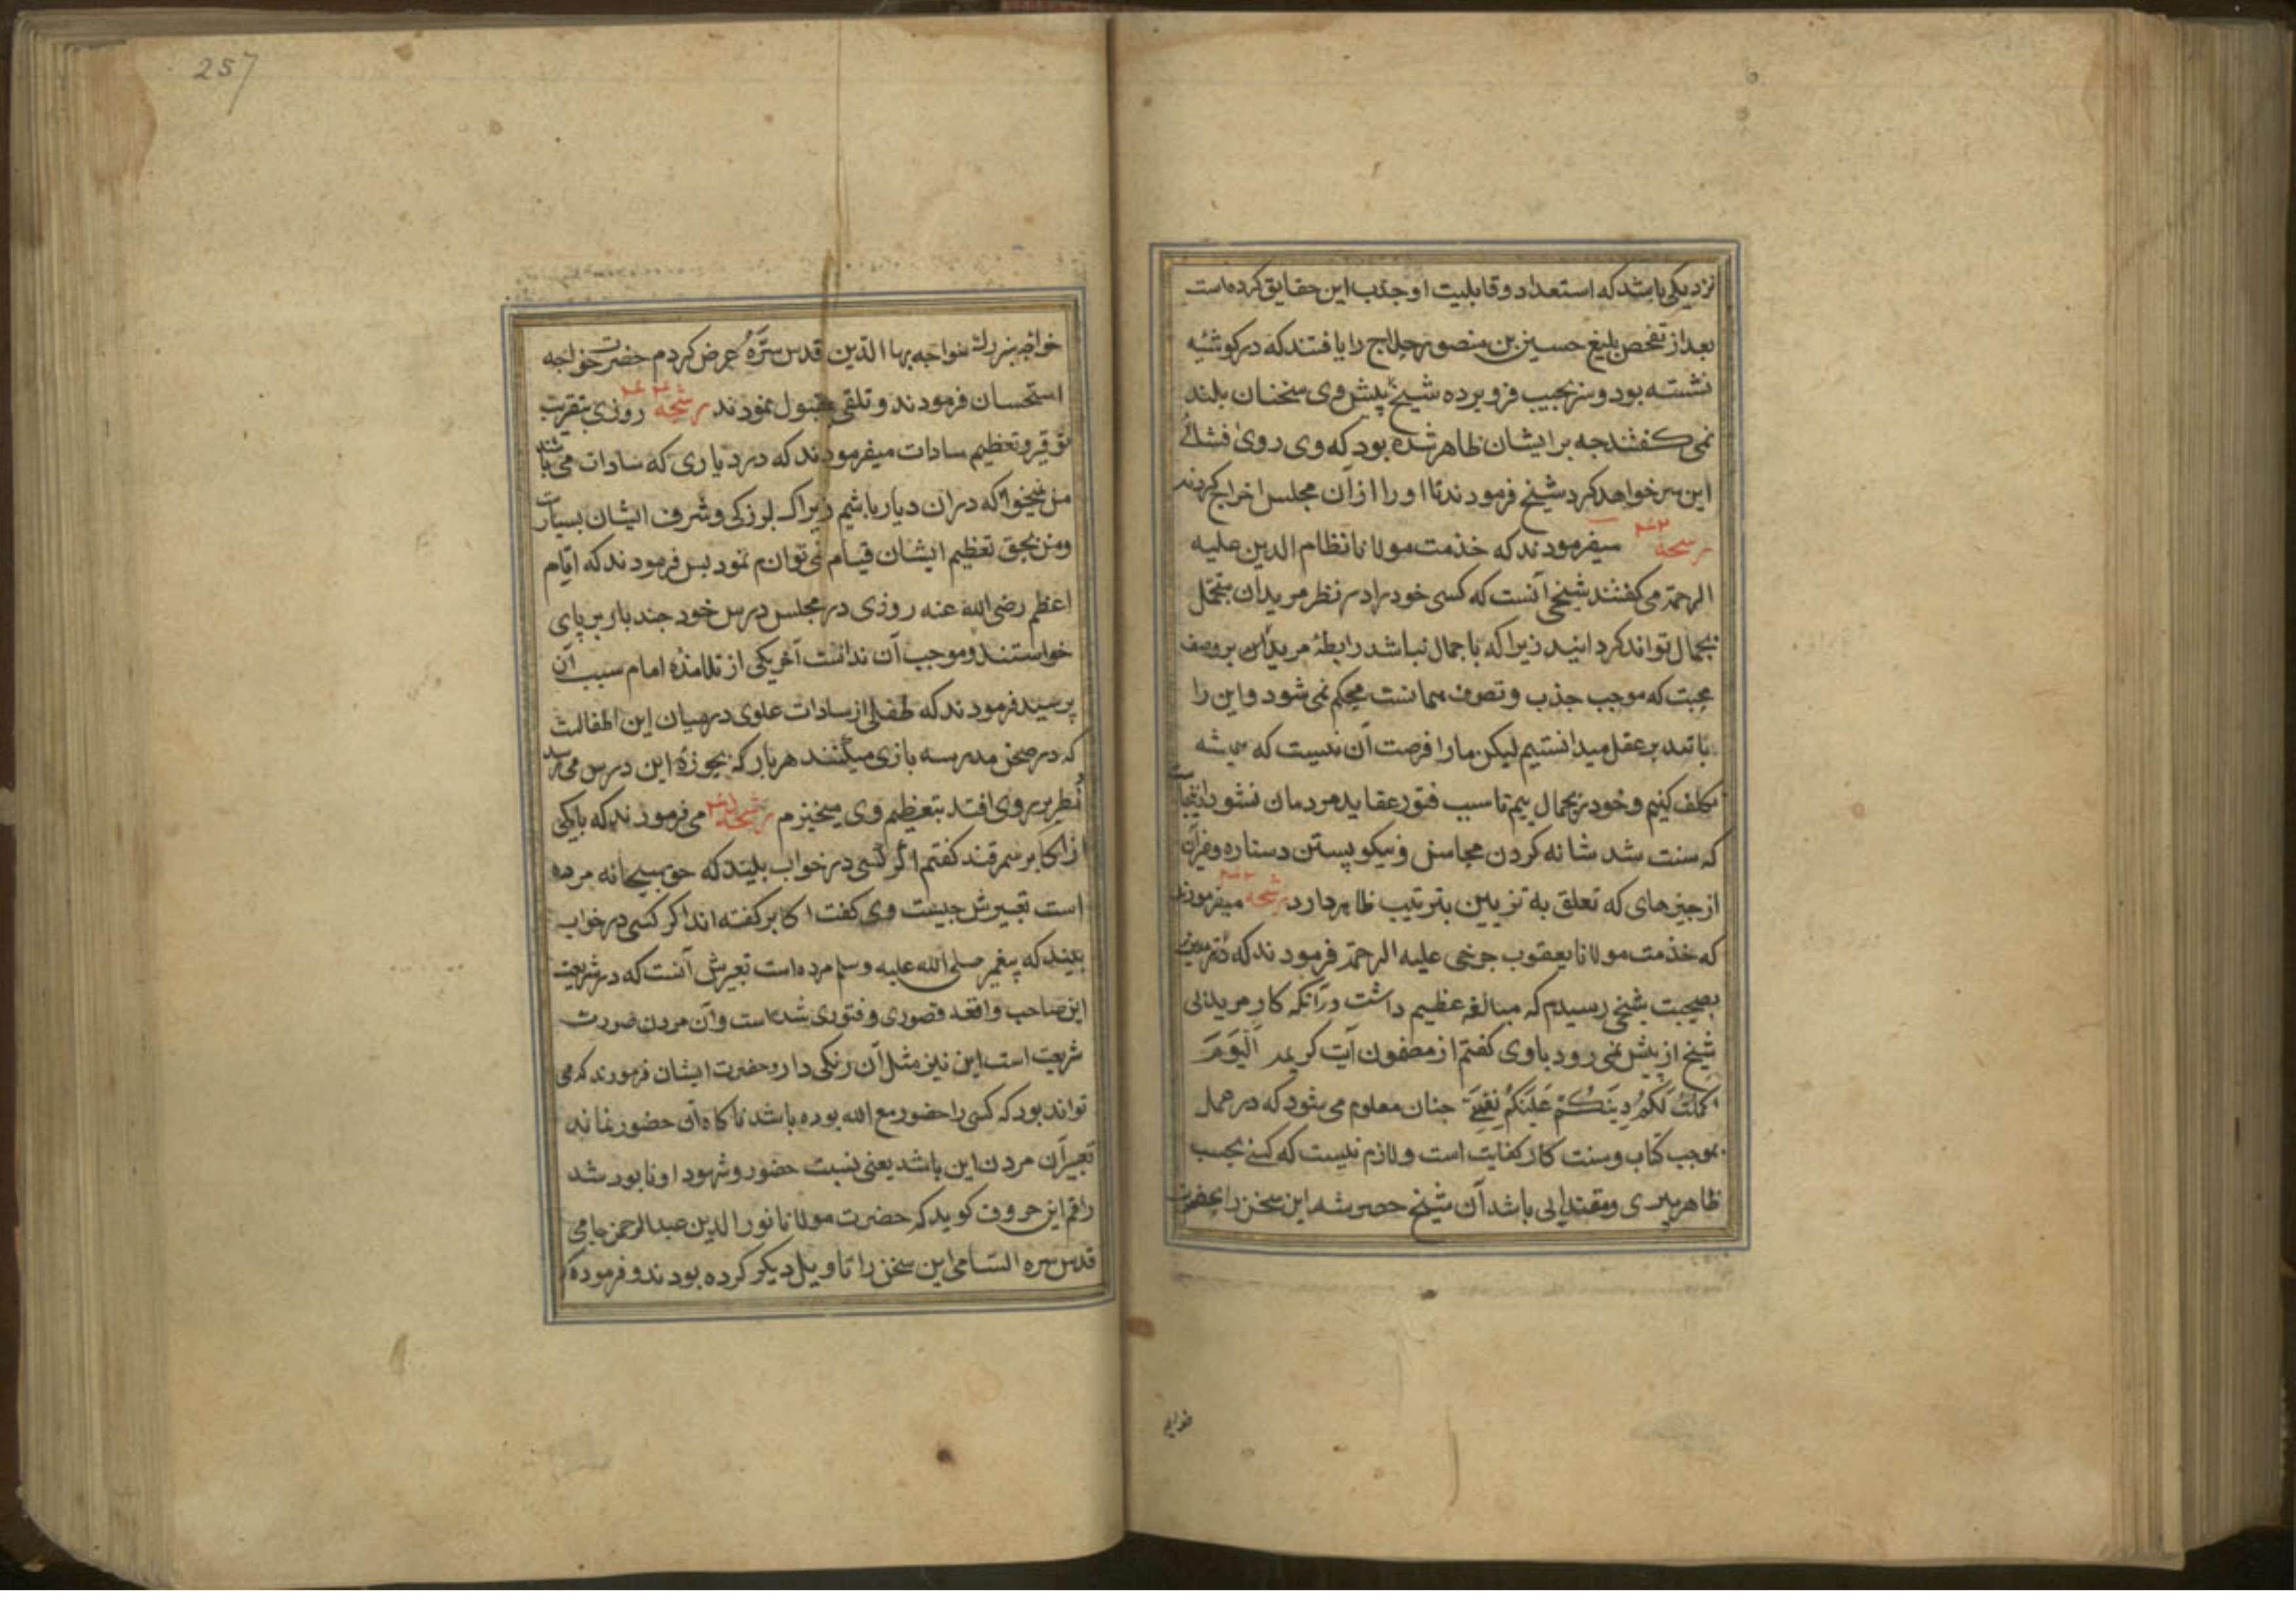 نزدیکی باشد که استعداد و قابلیت او جذب این حقایق کرده است
بعد از تفحص بلیغ حسین بن منصور حلاج را یافتند که در کوشهٔ
نشسته بود و سر بجیب فرو برده شیخ پیش وی سخنان بلند
نمی کفتند جه بر ایشان ظاهر شده بود که وی روی افشائے
این سر خواهد کرد شیخ فرمودند تا او را از آن مجلس اخراج کردند
رشحه میفرمودند که خذمت مولانا نظام الدین علیه
الرحمة می کفتند شیخی آنست که کسی خود را در نظر مریدان متجمل
بجمال تواند کردانید زیرا که باجمال نباشد رابطهٔ مریدان بر وصف
محبت که موجب جذب و تصرف همانست محکم نمی شود و این را
با تدبر عقل میدانستیم لیکن ما را فرصت آن نیست که همیشه
تکلف کنیم و خود بر جمال بیم تا سبب فتور عقاید مردمان نشود ازینجاست
که سنت شد شانه کردن محاسن و نیکو بستن دستار و غیر آن
از جیزهای که تعلق به تزیین بترتیب ظاهر دارد رشحه میفرمودند
که خذمت مولانا یعقوب جرخی علیه الرحمة فرمودند که در
بصحبت شیخی رسیدم که مبالغه عظیم داشت در آنکه کار مرید بی
شیخ از پیش نمی رود باوی کفتم از مضمون آیت کریمه اَلْیَوْمَ
اَکْمَلْتُ لَکُمْ دِینَکُمْ عَلَیْکُمْ نِعْمَتِی جنان معلوم می شود که در عمل
بموجب کتاب و سنت کار کفایت است و لازم نیست که کسے بحسب
ظاهر پیری و مقتدایی باشد آن شیخ حصر شد این سخن را بحضرت
خواجه
257
خواجه بزرك خواجه بهاالدین قدس سرّهُ عرض کردم حضرت خواجه
استحسان فرمودند و تلقی بقبول نمودند رشحه ۲۶۴ روزی بتقریب
توقیر و تعظیم سادات میفرمودند که در دیاری که سادات می باشند
من نمیخواهم که در آن دیار باشم زیراکه بزرکی و شرف ایشان بسیارست
و من بحق تعظیم ایشان قیام نمی توانم نمود بس فرمودند که امام
اعظم رضی الله عنه روزی در مجلس درس خود جند بار بر پای
خواستند و موجب آن ندانست آخر یکی از تلامذهٔ امام سبب آن
پرسید فرمودند که طفلی از سادات علوی در میان این اطفالست
که در صحن مدرسه بازی میکنند هر بار که بحوزهٔ این درس می رسد
نظر بر روی افتد بتعظیم وی میخیزم رشحه می فرمودند که با یکی
از اکابر سمرقند کفتم اکر کسی در خواب بیند که حق سبحانه مرده
است تعبیرش جیست وی کفت اکابر کفته اند اکر کسی در خواب
بیند که پیغمبر صلی الله علیه وسلم مرده است تعبیرش آنست که در شریعت
این صاحب واقعه قصوری و فتوری شده است و آن مردن صورت
شریعت است این نیز مثل آن رنکی دارد حضرت ایشان فرمودند که می
تواند بود که کسی را حضور مع الله بوده باشد ناکاه آن حضور نماند
تعبیر آن مردن این باشد یعنی نسبت حضور و شهود او نابود شد
راقم این حروف کوید که حضرت مولانا نورالدین عبدالرحمن جامی
قدس سره السامی این سخن را تاویل دیکر کرده بودند و فرموده